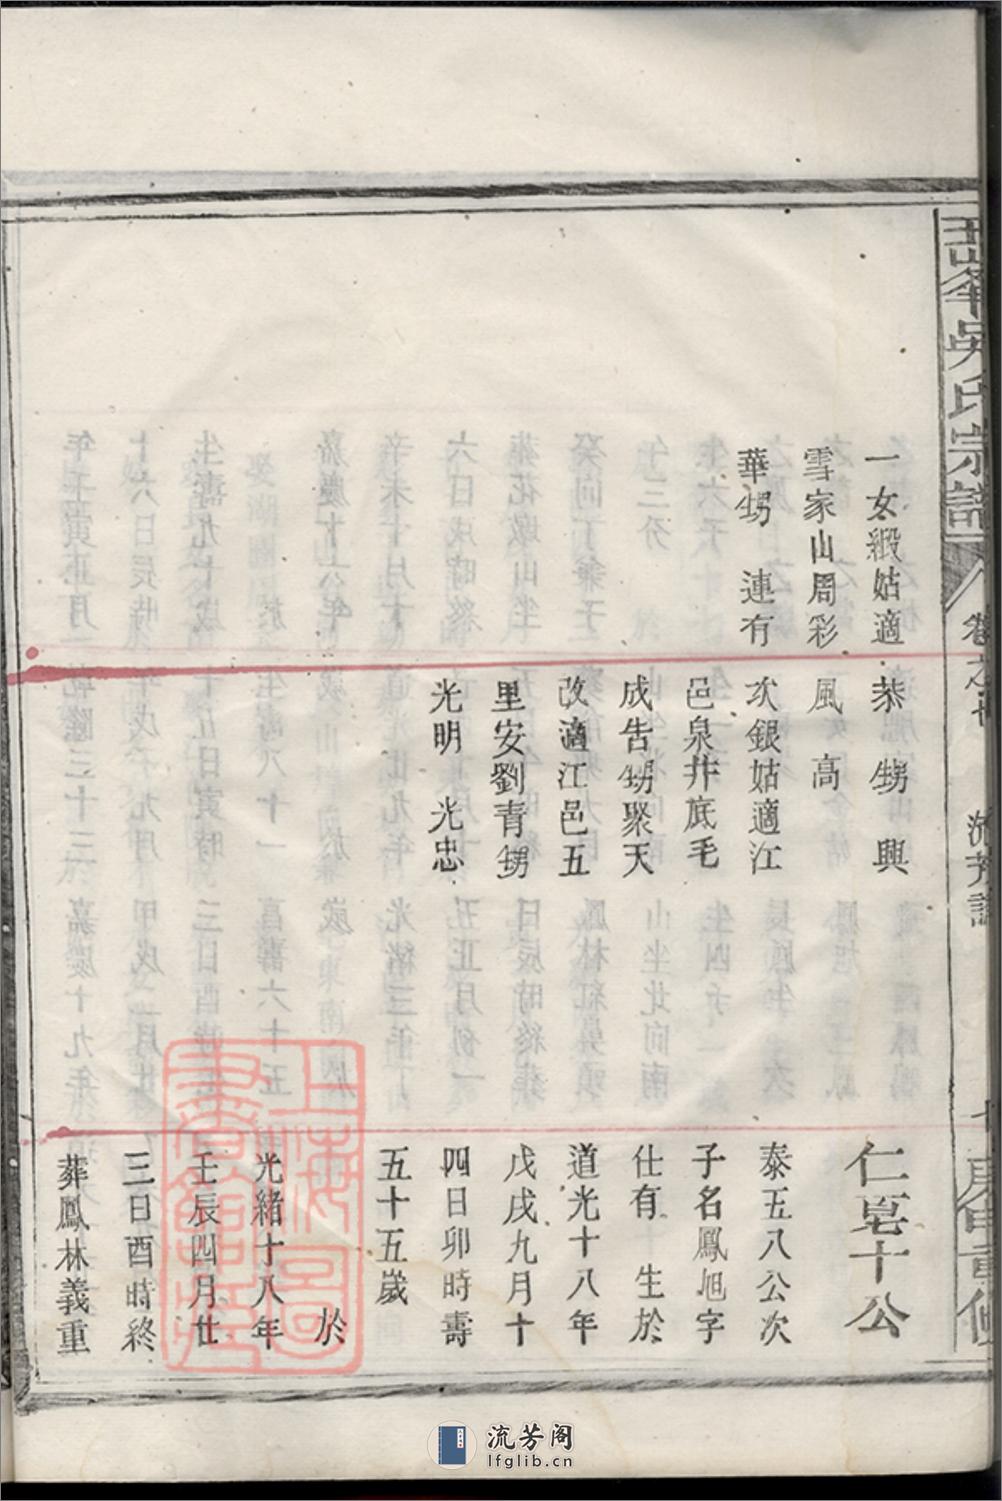 吳氏宗譜
卷之七
流芳譜
一女緞姑適
雪家山周彩
華甥　連有
恭甥　興
風　高
次銀姑適江
邑泉井底毛
成告甥聚天
改適江邑五
里安劉青甥
光明　光忠
仁十公
泰五八公次
子名鳳旭字
仕有　生於
道光十八年
戊戌九月十
四日卯時壽
五十五歲
於
光緒十八年
壬辰四月廿
三日酉時終
葬鳳林義重
上海圖書館藏
流芳阁
lfglib.cn